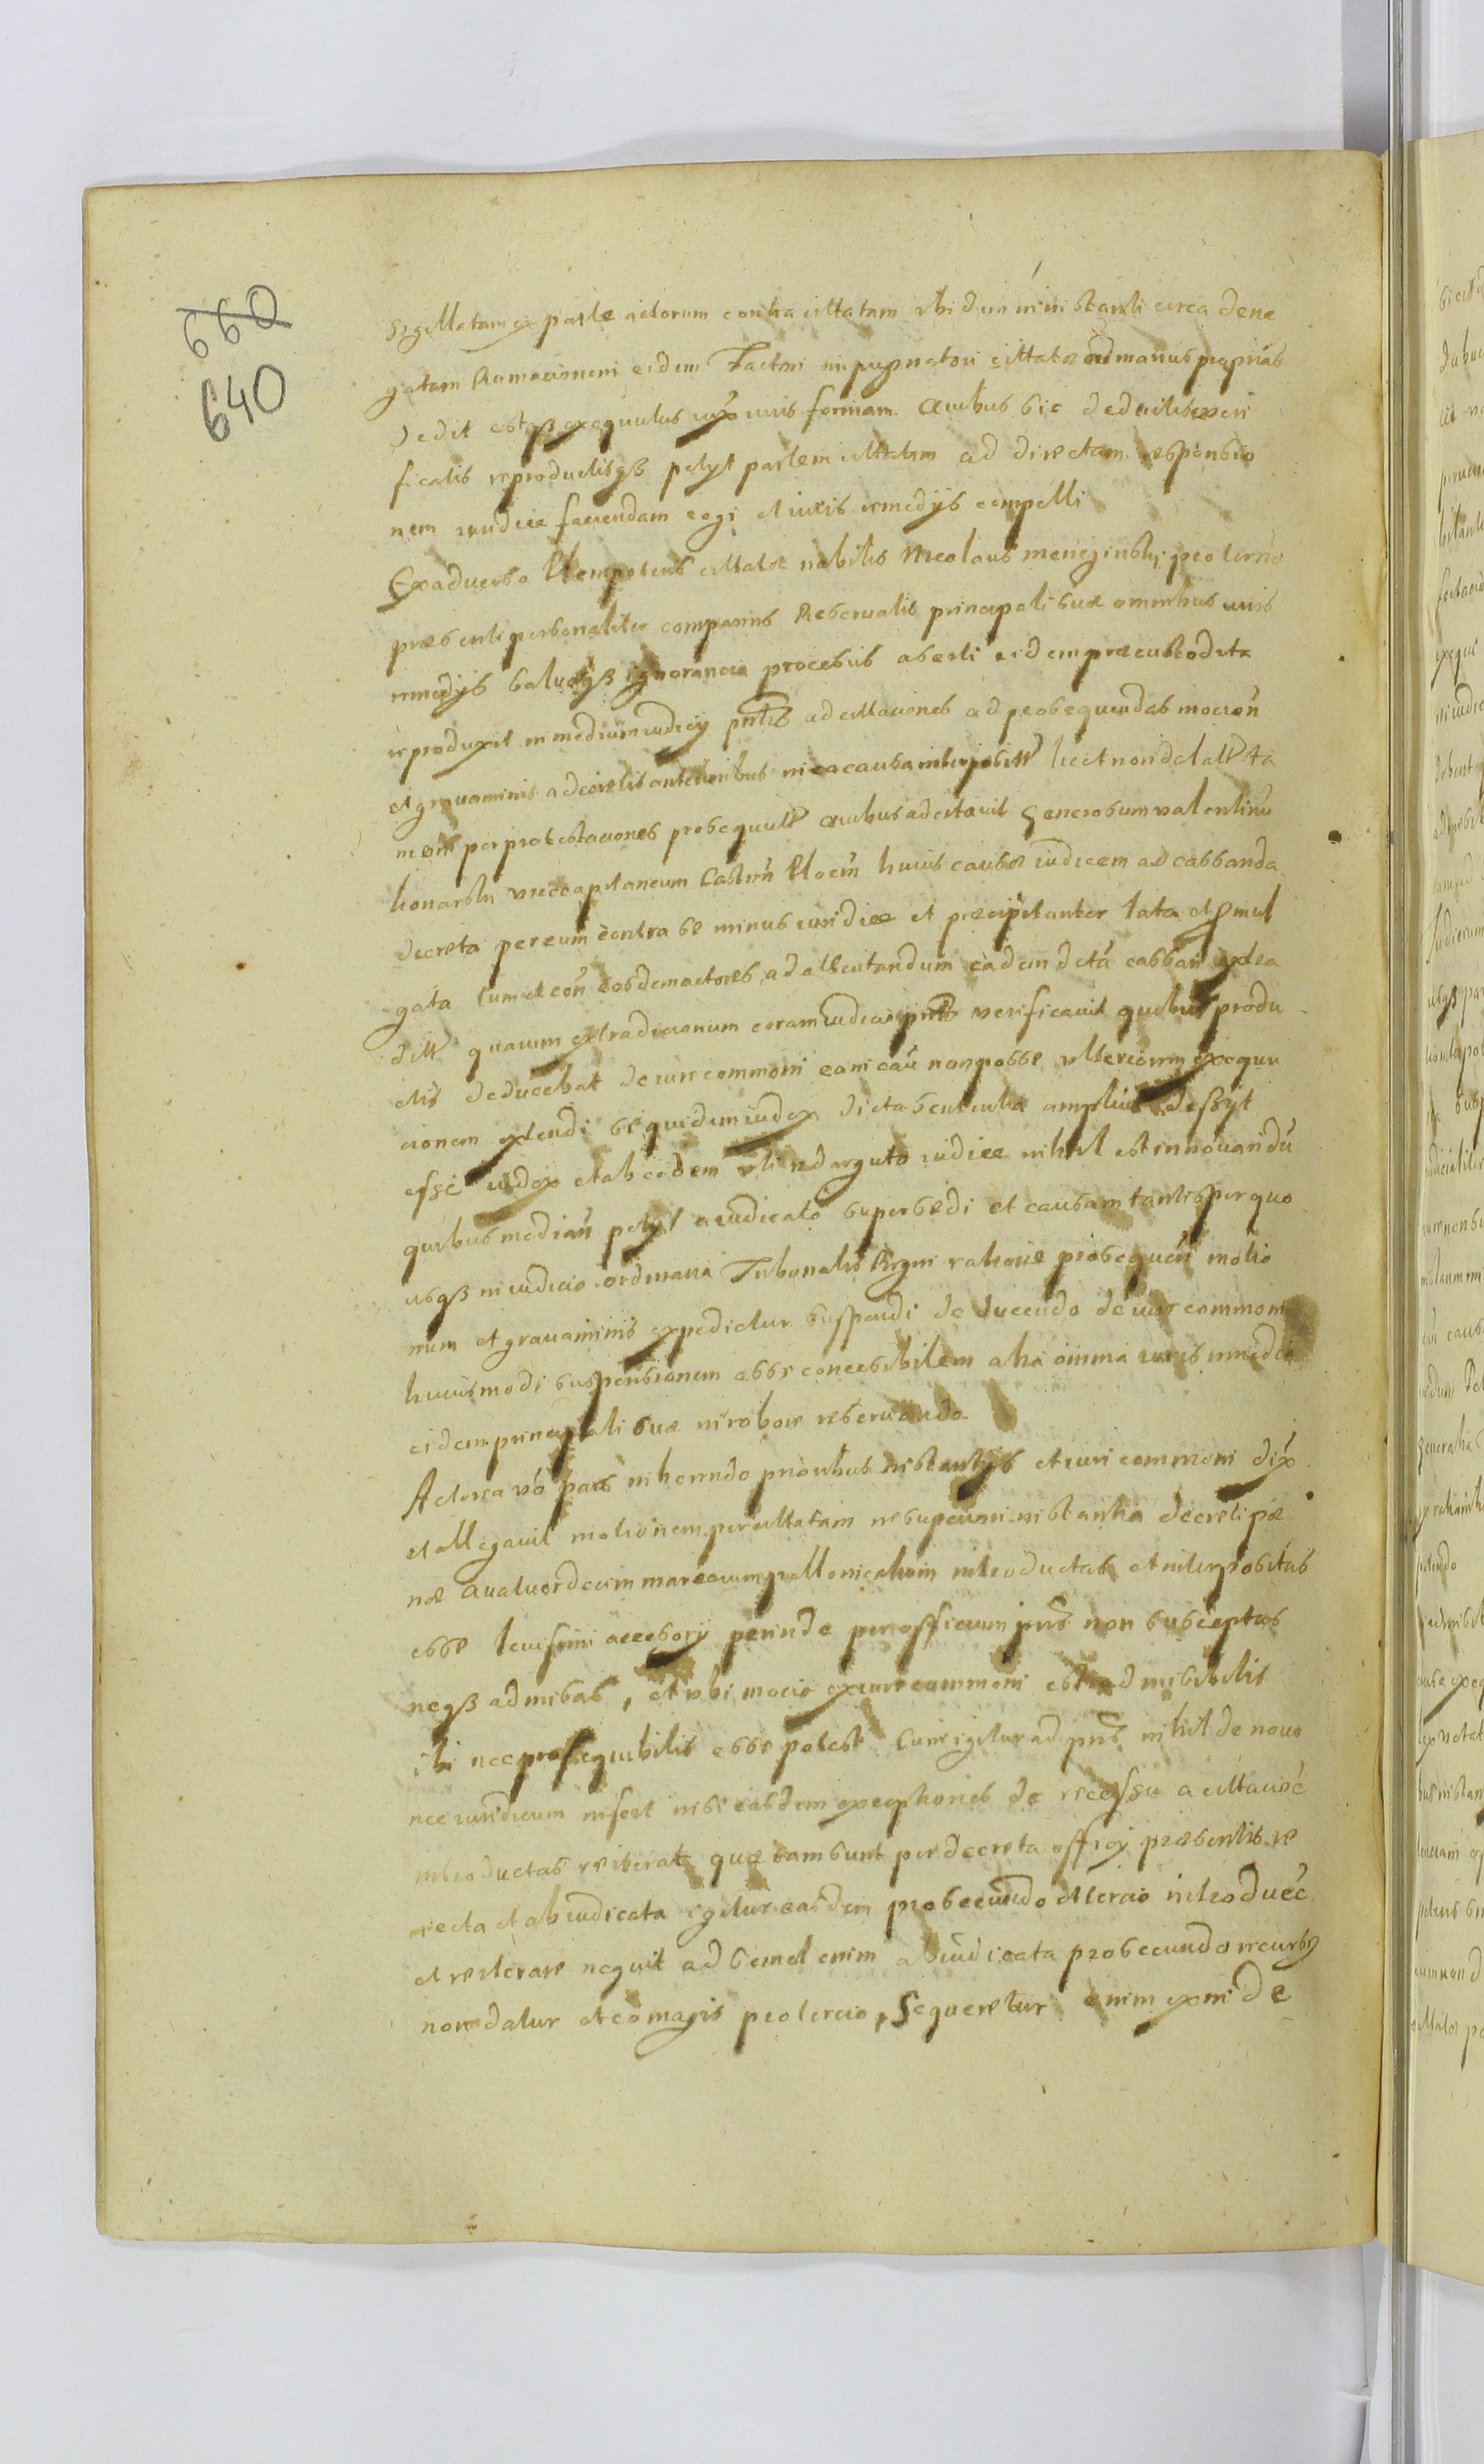 660
640
Sigillatam ex parte actorum contra cittatam ubi dum in instanti circa dene
gatam Rumacionem eidem Factori impugnatori cittatæ ad manus proprias
dedit estqß exequutus iux iuris formam Quibus sic deductis veri
ficatis reproductisqß petyt partem citatam ad directam responsio
nem iuridice faciendam cogi et iuris remedys compelli
Exadverso Plenipotens cittatæ nobilis Nicolaus pro termo
præsenti personaliter comparens Reservatis principali suæ omnibus iuris
remedys salvaqß ignorancia processus absenti eidem præcustodita
reproduxit in medium iudicy pntis ad cittationes ad prosequendas mocion
et gravaminis a decretis anterioribus in ea causa interposit licet non delatt ta
men per protestaciones prosequutt Quibus adcitavit Generosum Valentinu
vicecapitaneum Castren Plocen huius causæ iudicem ad cassanda
decreta per eum contra se minus iuridice et præcipitanter lata et promul
gata tum et con eosdem actores ad attentandum eadem dcta cassari extra
ditt quarum extradicionum coram iudicio pnti verificavit quibus produ
ctis deducebat de iure communi eam cau non posse ulteriorem exequu
cionem extendi siquidem iudex dicta sententia amplius desyt
esse iudex et ab eodem ubi redarguto iudice nihil est innovandu
quibus median petyt a iudicato supersedi et causam tantisper quo
usqß in iudicio ordinaria Tribunalis Regni ratione prosequen motio
num et gravaminis expedietur suspendi deducendo de iure communi
huiusmodi suspensionem esse concessibilem alia omnia iuris remedia
eidem principali suæ in robore reservando
Actorea vo pars inherendo prioribus instantys et iuri communi dix
et allegavit motionem per cittatam instantia decreti pæ
næ Quatuordecim marcarum pollonicalium introductas et interpositas
esse levissimi accesory perinde per officium pns non susceptas
neqß admissas, et ubi mocio ex iure communi est admisibilis
ibi nec prosequibilis esse potest Cum igitur ad pns nihil de novo
nec iuridicum infert nisi easdem exceptiones de recessu a cittatione
introductas reiterat quæ iam sunt per decreta officy præsentis re
iecta et abiudicata igitur easdem prosecundo et tercio introducc
et reiterare nequit ad semel enim abiudicata prosecundo recursus
non datur et eo magis pro tercio, Sequeretur enim exinde